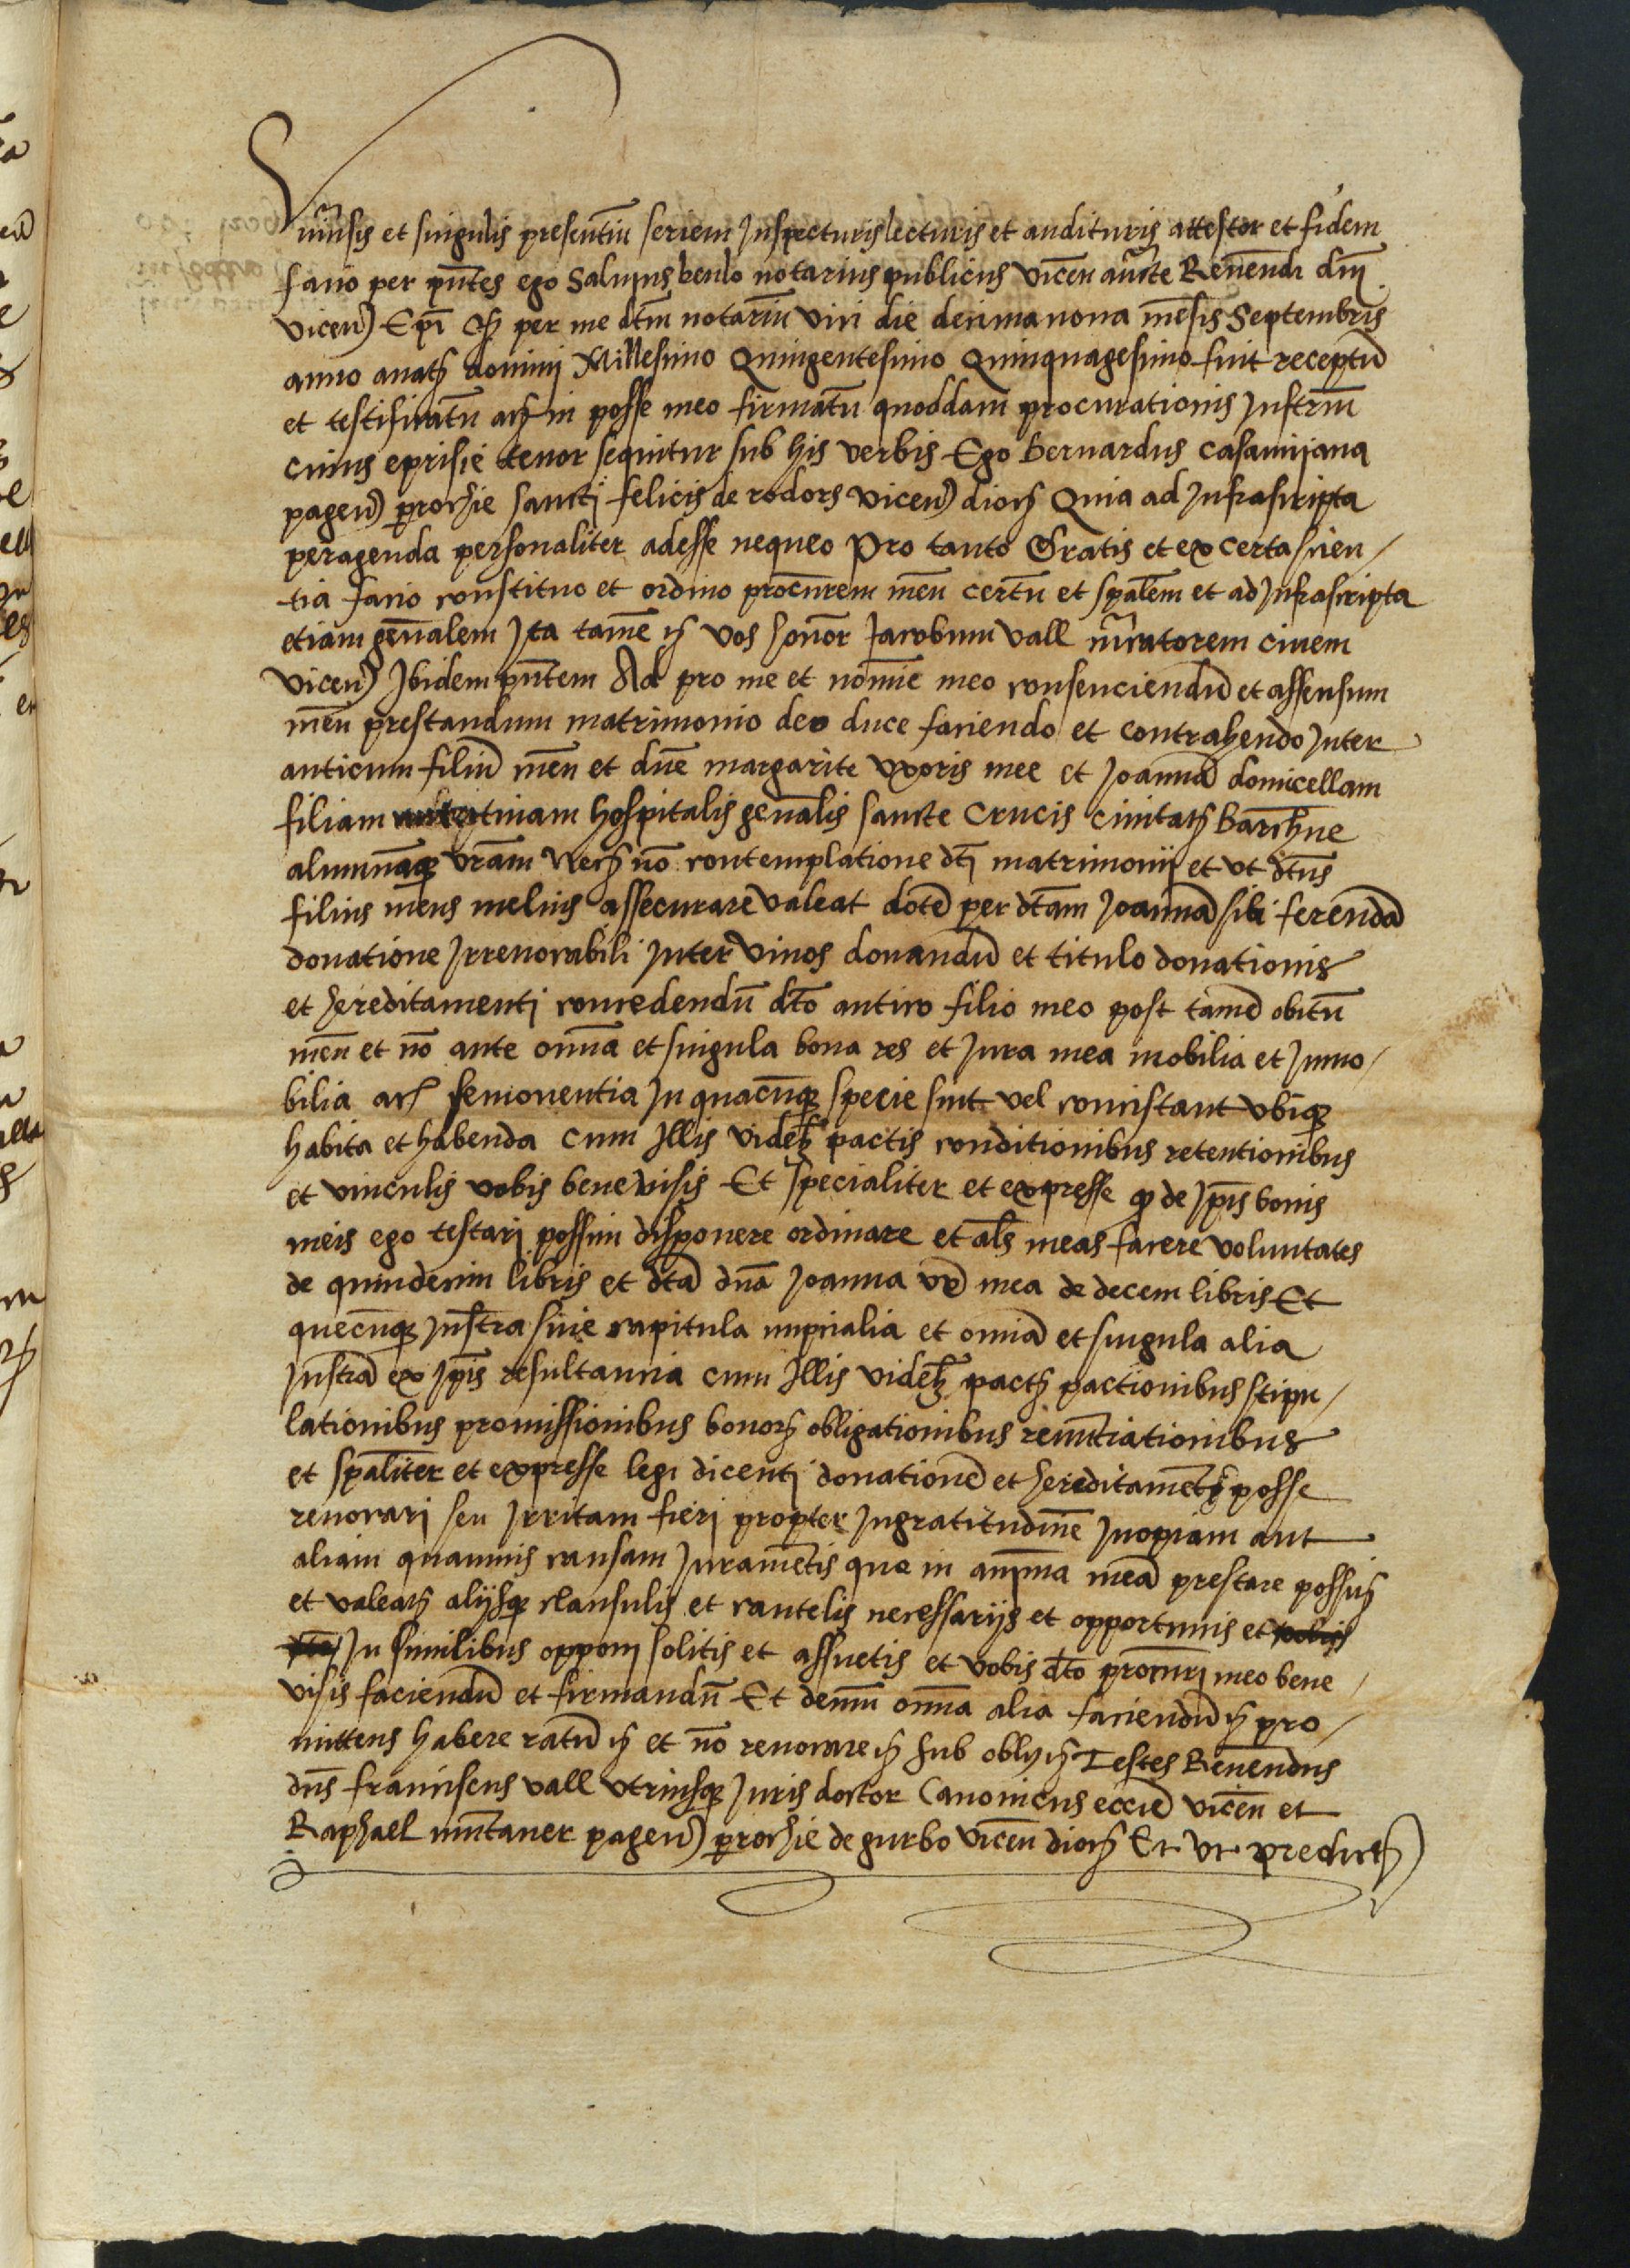 Vniuersis et singulis presentiu seriem Inspecturis lecturis et audituris attestor et fidem
facio per pntes ego Saluius beulo notarius publicus vicen aucte Reuendi dni
vicen Epi q per me dtm notariu vici die decima nona mensis Septembris
anno a natte domini Millesimo Quingentesimo Quinquagesimo fuit receptu
et testificatu ac in posse meo firmatu quoddam procurationis Instrm
cuius eprisie tenor sequitur sub his verbis Ego Bernardus casamijana
pagen prochie sancti felicis de rodors vicen dioc Quia ad Infrascripta
peragenda personaliter adesse nequeo Pro tanto Gratis et ex certa scien/
tia facio constituo et ordino procurem meu certu et spalem et ad Infrascripta
etiam genalem Ita tame q vos honor Jacobum vall mercatorem ciuem
vicen Ibidem pntem Ad pro me et nomie meo consenciendu et assensum
meu prestandum matrimonio deo duce faciendo et contrahendo Inter
anticum filiu meu et dne margarite vxoris mee et Joanna domicellam
filiam adoptiuam hospitalis genalis sancte Crucis ciuitats Barchne
alumnaq vram Necno contemplatione dti matrimonij et vt dtus
filius meus melius assecurare valeat dote per dtam Joanna sibi ferenda
donatione Irreuocabili Inter viuos donandu et titulo donationis
et hereditamenti concedendu dto antico filio meo post tame obitu
meu et no ante omnia et singula bona res et Jura mea mobilia et Immo/
bilia ac semouentia In quacuq specie sint vel concistant vbiq
habita et habenda cum Illis videlz pactis conditionibus retentionibus
et vinculis vobis bene visis Et specialiter et expresse q de Ipis bonis
meis ego testari possim disponere ordinare et als meas facere voluntates
de quindecim libris et dta dna Joanna vx mea de decem libris Et
quecuq Instra siue capitula nupcialia et omia et singula alia
Instra ex Ipis resultancia cum Illis videlz pactis pactionibus stipu/
lationibus promissionibus bonor obligationibus renuntiationibus
et spaliter et expresse legi dicenti donatione et hereditamet posse
reuocari seu Irritam fieri propter Ingratitudine Inopiam aut
aliam quamuis causam Iurametis que in anima mea prestare possitis
et valeatis alijsq clausulis et cautelis necessarijs et opportunis et vobis
dto In similibus opponi solitis et assuetis et vobis dto procuri meo bene/
visis faciendu et firmandu Et demu omnia alia faciendu q pro/
mittens habere ratu q et no reuocare q sub obly q Testes Reuendus
dns franciscus vall Vtriusq Juris doctor Canonicus eccie vicen et
Raphael muntaner pagen prochie de gurbo vicen dioc Et vt predictis